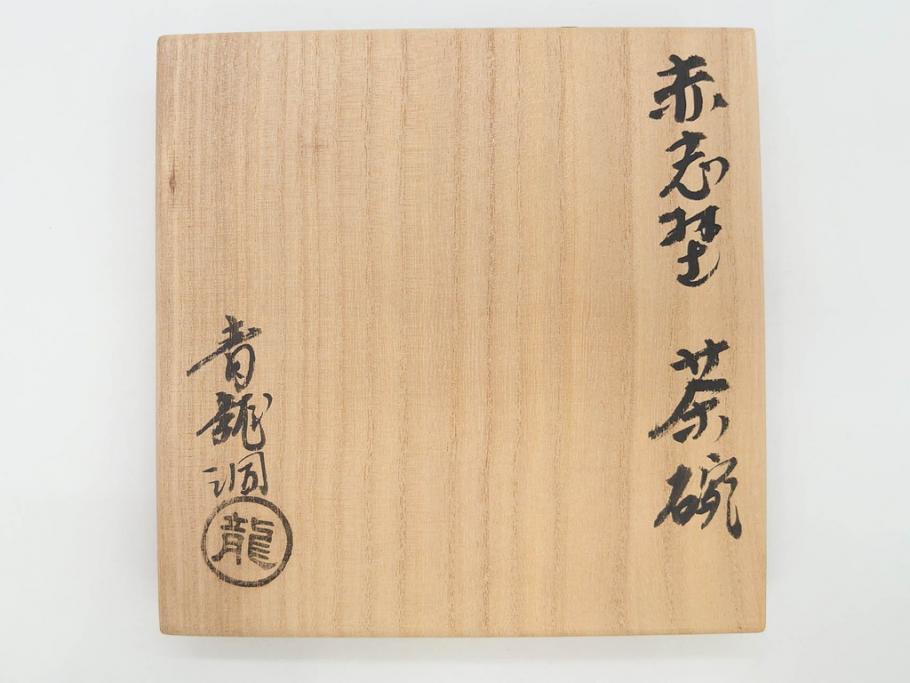 赤志埜 茶碗
青龍洞
龍